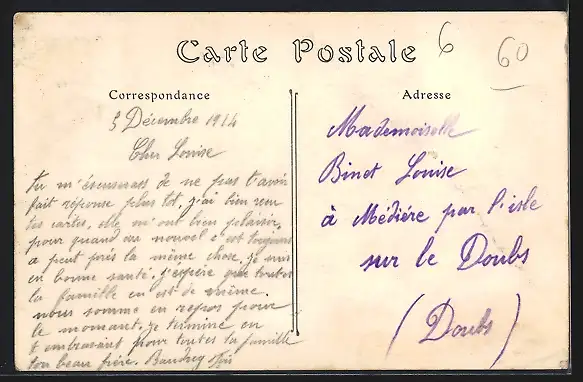 Carte Postale
6
60
Correspondance
5 Décembre 1914
Cher Louise
tu m'éscuserais de ne pas t'avoir
fait réponse plus tot, j'ai bien reçu
tes cartes, elle m'ont bien plaisir,
pour quand au nouvel c'est toujours
a peut près la même chose, je suis
en bonne santé, j'espère que toutes
la famille en est de même.
nous somme en repos pour
le momant, je termine en
t'embrasant pour toutes ta famille
ton beau frère. Baudrey
Adresse
Mademoiselle
Binet Louise
à Médière par l'isle
sur le Doubs
(Doubs)